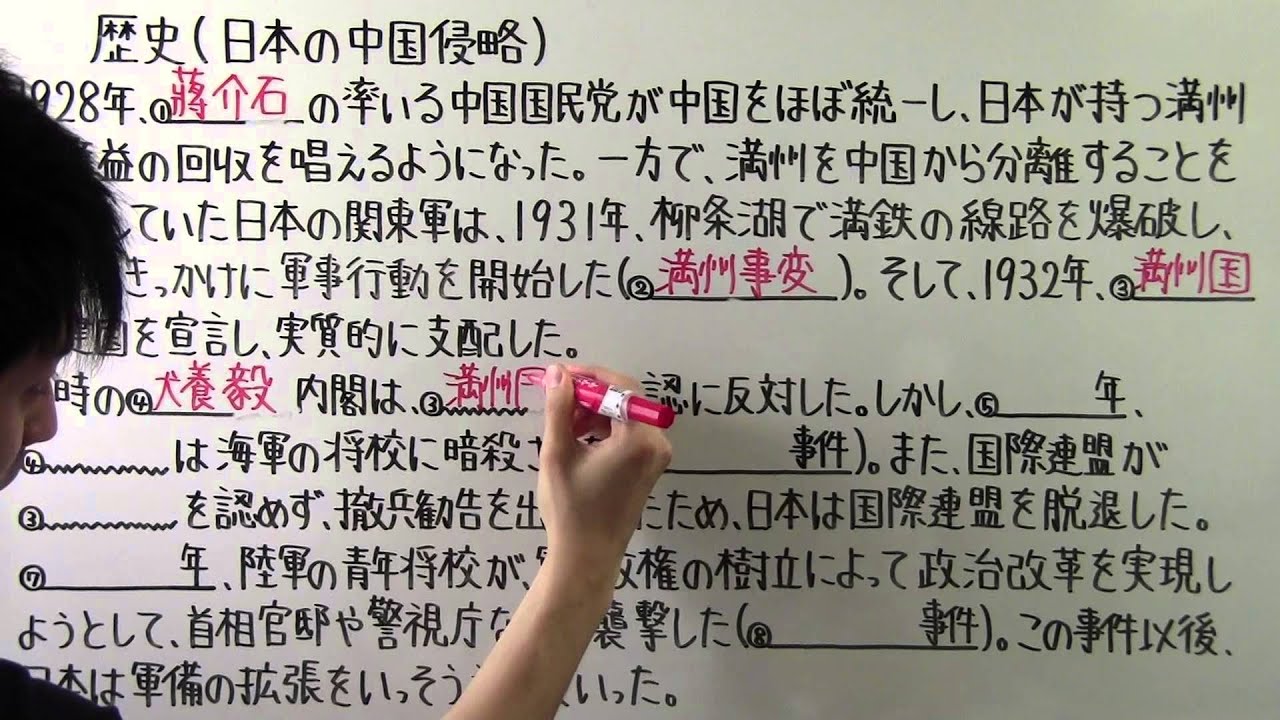 歴史(日本の中国侵略)
928年、①蔣介石の率いる中国国民党が中国をほぼ統一し、日本が持つ満州
益の回収を唱えるようになった。一方で、満州を中国から分離することを
ていた日本の関東軍は、1931年、柳条湖で満鉄の線路を爆破し、
きっかけに軍事行動を開始した(②満州事変)。そして、1932年、③満州国
国を宣言し、実質的に支配した。
時の④犬養毅 内閣は、③満州 認に反対した。しかし、⑤ 年、
④ は海軍の将校に暗殺さ 事件)。また、国際連盟が
③ を認めず、撤兵勧告を出 ため、日本は国際連盟を脱退した。
⑦ 年、陸軍の青年将校が、 権の樹立によって政治改革を実現し
ようとして、首相官邸や警視庁な 襲撃した(⑧ 事件)。この事件以後、
本は軍備の拡張をいっそう いった。